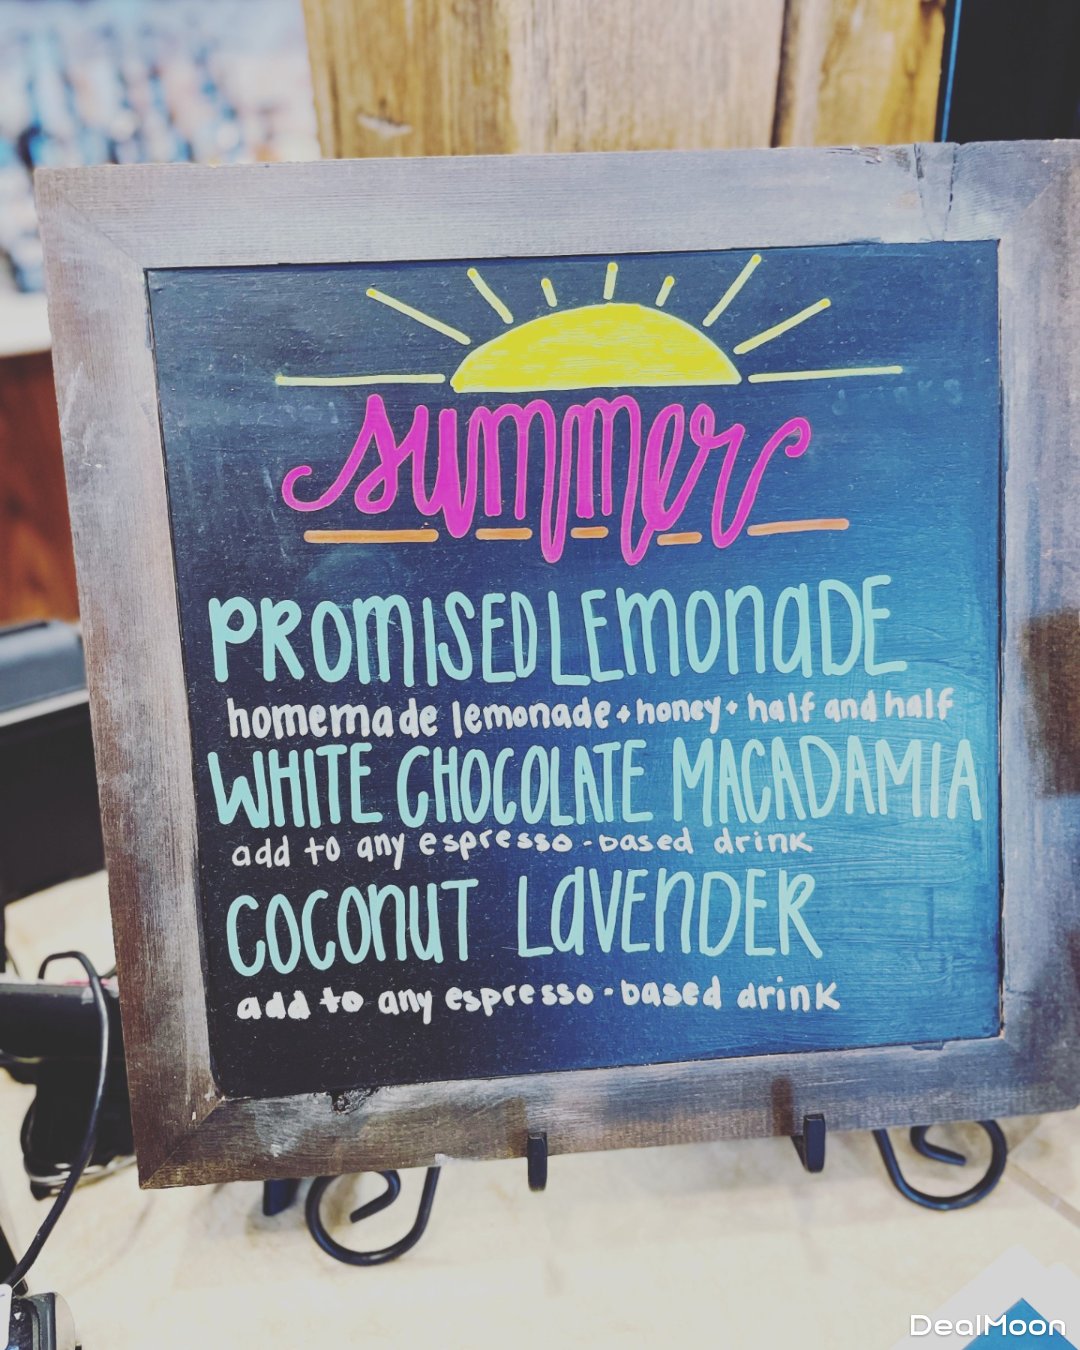 summer
PROMISED LEMONADE
homemade lemonade + honey + half and half
WHITE CHOCOLATE MACADAMIA
add to any espresso-based drink
COCONUT LAVENDER
add to any espresso-based drink
DealMoon